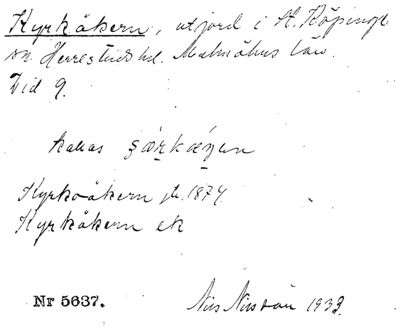 Kyrkåkern, utjord i St. Köpinge
sn. Herrestads hd. Malmöhus län.
Did 9.
kallas
Kyrkoåkern jb. 1874.
Kyrkåkern ek
Nr 5637.
Nils Nilsson 1933.